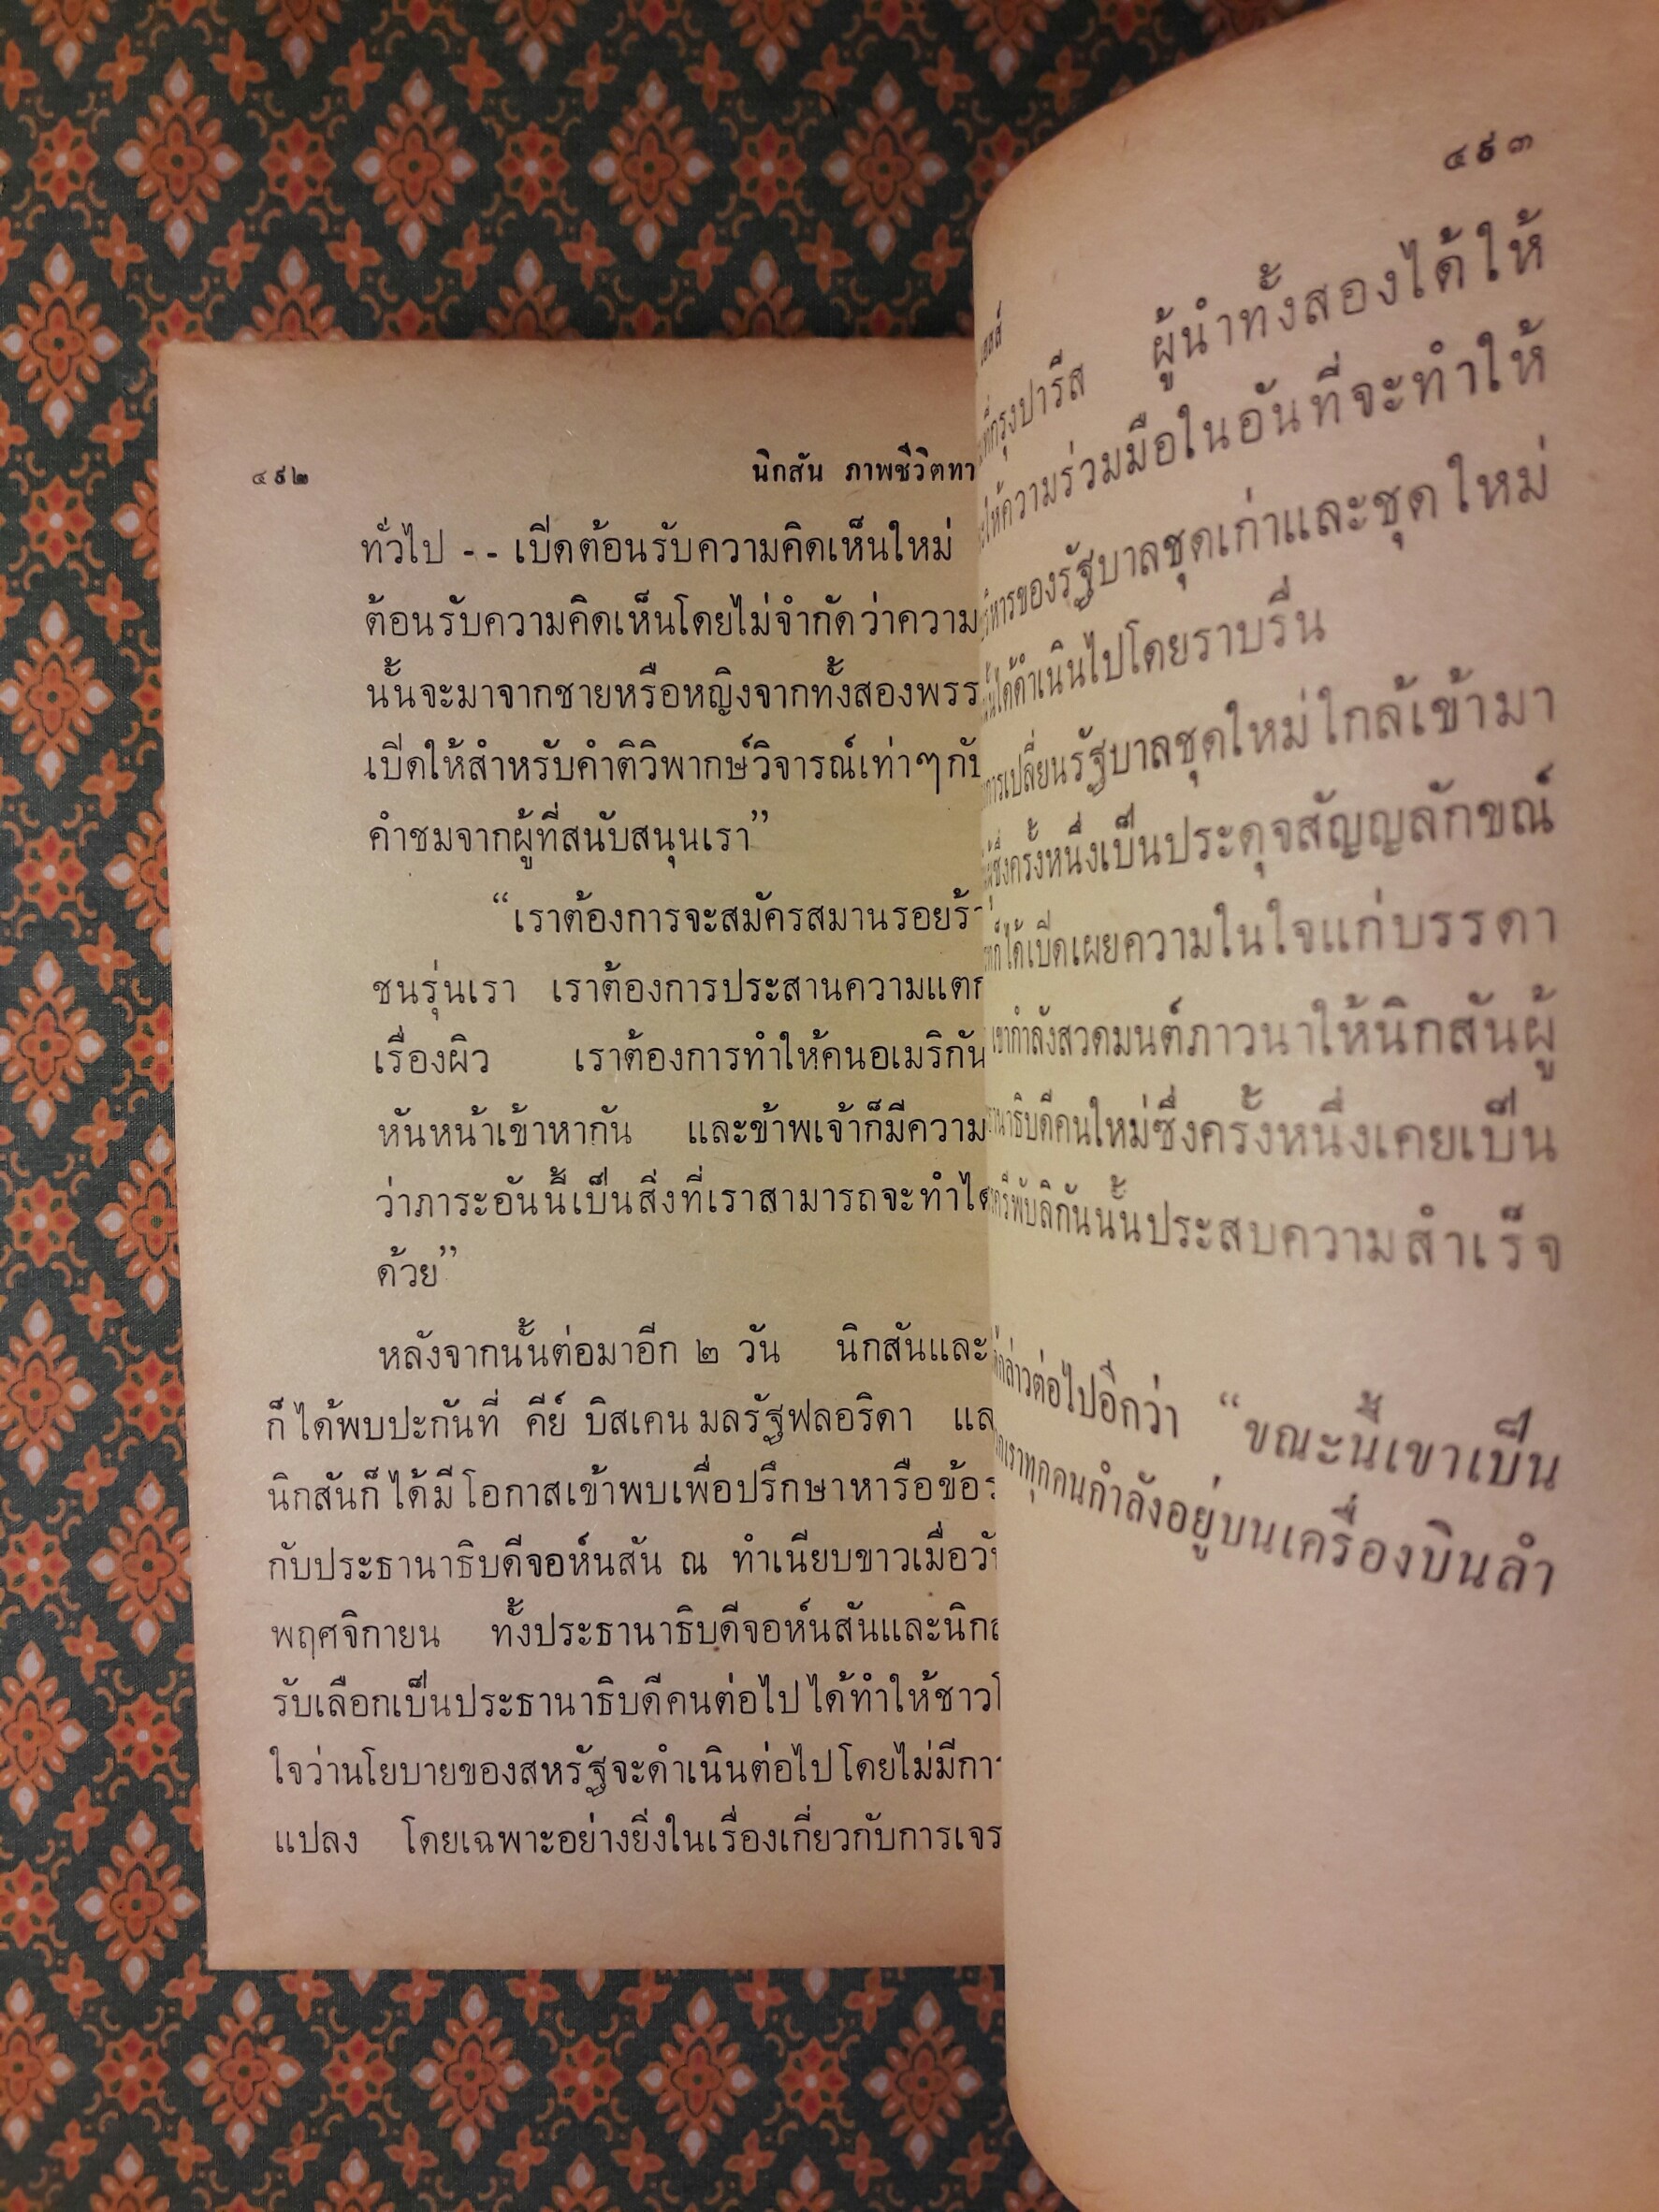 ๔๙๒
นิกสัน ภาพชีวิตทา
ทั่วไป -- เปิดต้อนรับความคิดเห็นใหม่
ต้อนรับความคิดเห็นโดยไม่จำกัดว่าความ
นั้นจะมาจากชายหรือหญิงจากทั้งสองพรร
เปิดให้สำหรับคำติวิพากษ์วิจารณ์เท่าๆกับ
คำชมจากผู้ที่สนับสนุนเรา”
“เราต้องการจะสมัครสมานรอยร้า
ชนรุ่นเรา เราต้องการประสานความแตก
เรื่องผิว เราต้องการทำให้คนอเมริกัน
หันหน้าเข้าหากัน และข้าพเจ้าก็มีความ
ว่าภาระอันนี้เป็นสิ่งที่เราสามารถจะทำได้
ด้วย”
หลังจากนั้นต่อมาอีก ๒ วัน นิกสันและ
ก็ได้พบปะกันที่ คีย์ บิสเคน มลรัฐฟลอริดา แล
นิกสันก็ได้มีโอกาสเข้าพบเพื่อปรึกษาหารือข้อร
กับประธานาธิบดีจอห์นสัน ณ ทำเนียบขาวเมื่อวั
พฤศจิกายน ทั้งประธานาธิบดีจอห์นสันและนิกส
รับเลือกเป็นประธานาธิบดีคนต่อไป ได้ทำให้ชาวโ
ใจว่านโยบายของสหรัฐจะดำเนินต่อไปโดยไม่มีกา
แปลง โดยเฉพาะอย่างยิ่งในเรื่องเกี่ยวกับการเจร
๔๙๓
ที่กรุงปารีส ผู้นำทั้งสองได้ให้
ให้ความร่วมมือในอันที่จะทำให้
หารของรัฐบาลชุดเก่าและชุดใหม่
ได้ดำเนินไปโดยราบรื่น
การเปลี่ยนรัฐบาลชุดใหม่ใกล้เข้ามา
ซึ่งครั้งหนึ่งเป็นประดุจสัญญลักขณ์
ก็ได้เปิดเผยความในใจแก่บรรดา
เขากำลังสวดมนต์ภาวนาให้นิกสันผู้
านาธิบดีคนใหม่ซึ่งครั้งหนึ่งเคยเป็น
ครีพับลิกันนั้นประสบความสำเร็จ
กล่าวต่อไปอีกว่า “ขณะนี้เขาเป็น
เราทุกคนกำลังอยู่บนเครื่องบินลำ